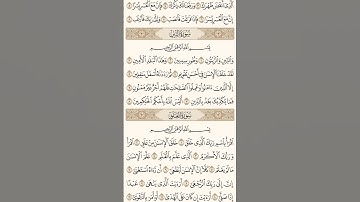 الَّذِي أَنقَضَ ظَهْرَكَ ۝ وَرَفَعْنَا لَكَ ذِكْرَكَ ۝ فَإِنَّ مَعَ الْعُسْرِ يُسْرًا ۝
إِنَّ مَعَ الْعُسْرِ يُسْرًا ۝ فَإِذَا فَرَغْتَ فَانصَبْ ۝ وَإِلَىٰ رَبِّكَ فَارْغَب ۝
سُورَةُ التِّينِ
بِسْمِ اللَّهِ الرَّحْمَٰنِ الرَّحِيمِ
وَالتِّينِ وَالزَّيْتُونِ ۝ وَطُورِ سِينِينَ ۝ وَهَٰذَا الْبَلَدِ الْأَمِينِ ۝
لَقَدْ خَلَقْنَا الْإِنسَانَ فِي أَحْسَنِ تَقْوِيمٍ ۝ ثُمَّ رَدَدْنَاهُ أَسْفَلَ سَافِلِينَ ۝
إِلَّا الَّذِينَ آمَنُوا وَعَمِلُوا الصَّالِحَاتِ فَلَهُمْ أَجْرٌ غَيْرُ مَمْنُونٍ ۝
فَمَا يُكَذِّبُكَ بَعْدُ بِالدِّينِ ۝ أَلَيْسَ اللَّهُ بِأَحْكَمِ الْحَاكِمِينَ ۝
سُورَةُ الْعَلَقِ
بِسْمِ اللَّهِ الرَّحْمَٰنِ الرَّحِيمِ
اقْرَأْ بِاسْمِ رَبِّكَ الَّذِي خَلَقَ ۝ خَلَقَ الْإِنسَانَ مِنْ عَلَقٍ ۝ اقْرَأْ
وَرَبُّكَ الْأَكْرَمُ ۝ الَّذِي عَلَّمَ بِالْقَلَمِ ۝ عَلَّمَ الْإِنسَانَ
مَا لَمْ يَعْلَمْ ۝ كَلَّا إِنَّ الْإِنسَانَ لَيَطْغَىٰ ۝ أَن رَّآهُ اسْتَغْنَىٰ ۝
إِنَّ إِلَىٰ رَبِّكَ الرُّجْعَىٰ ۝ أَرَأَيْتَ الَّذِي يَنْهَىٰ ۝ عَبْدًا
إِذَا صَلَّىٰ ۝ أَرَأَيْتَ إِن كَانَ عَلَى الْهُدَىٰ ۝ أَوْ أَمَرَ بِالتَّقْوَىٰ ۝